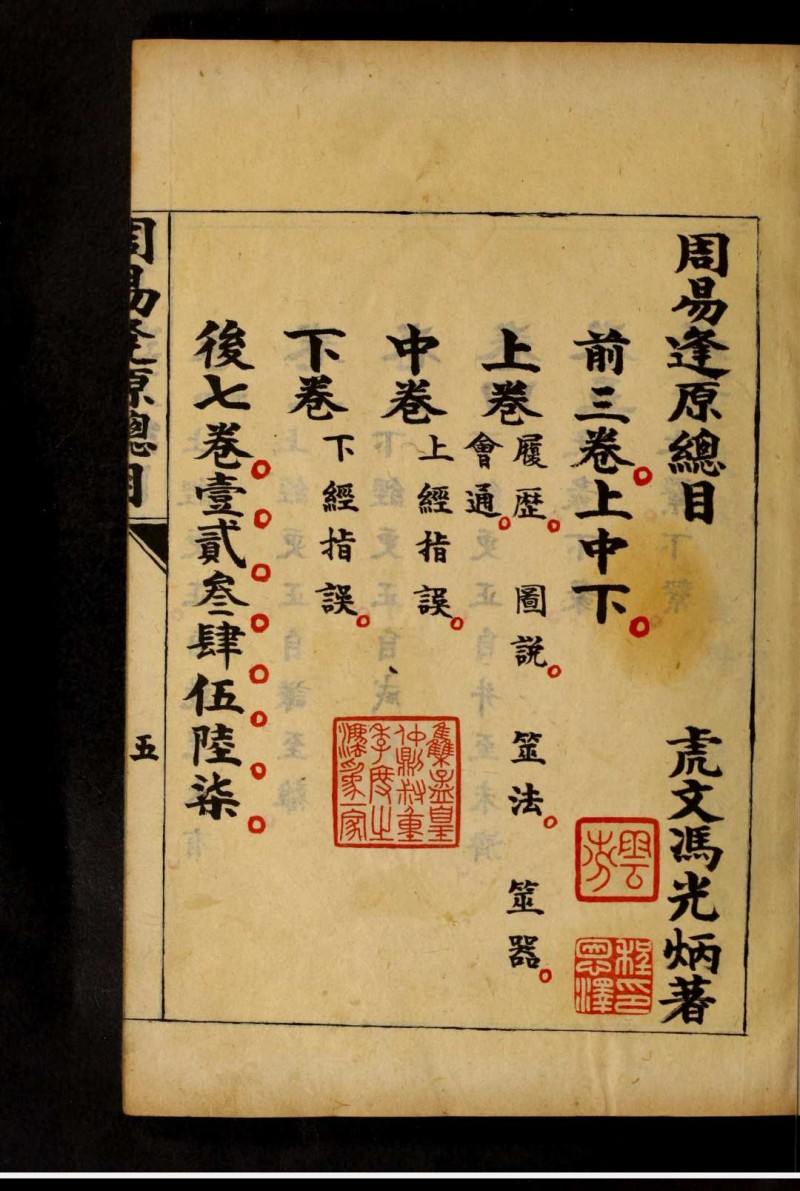 周易逢原總目
虎文馮光炳著
前三卷上中下
上卷
履歷 圖說 筮法 筮器
會通
中卷
上經指誤
下卷
下經指誤
後七卷壹貳叄肆伍陸柒
周易逢原總目
五